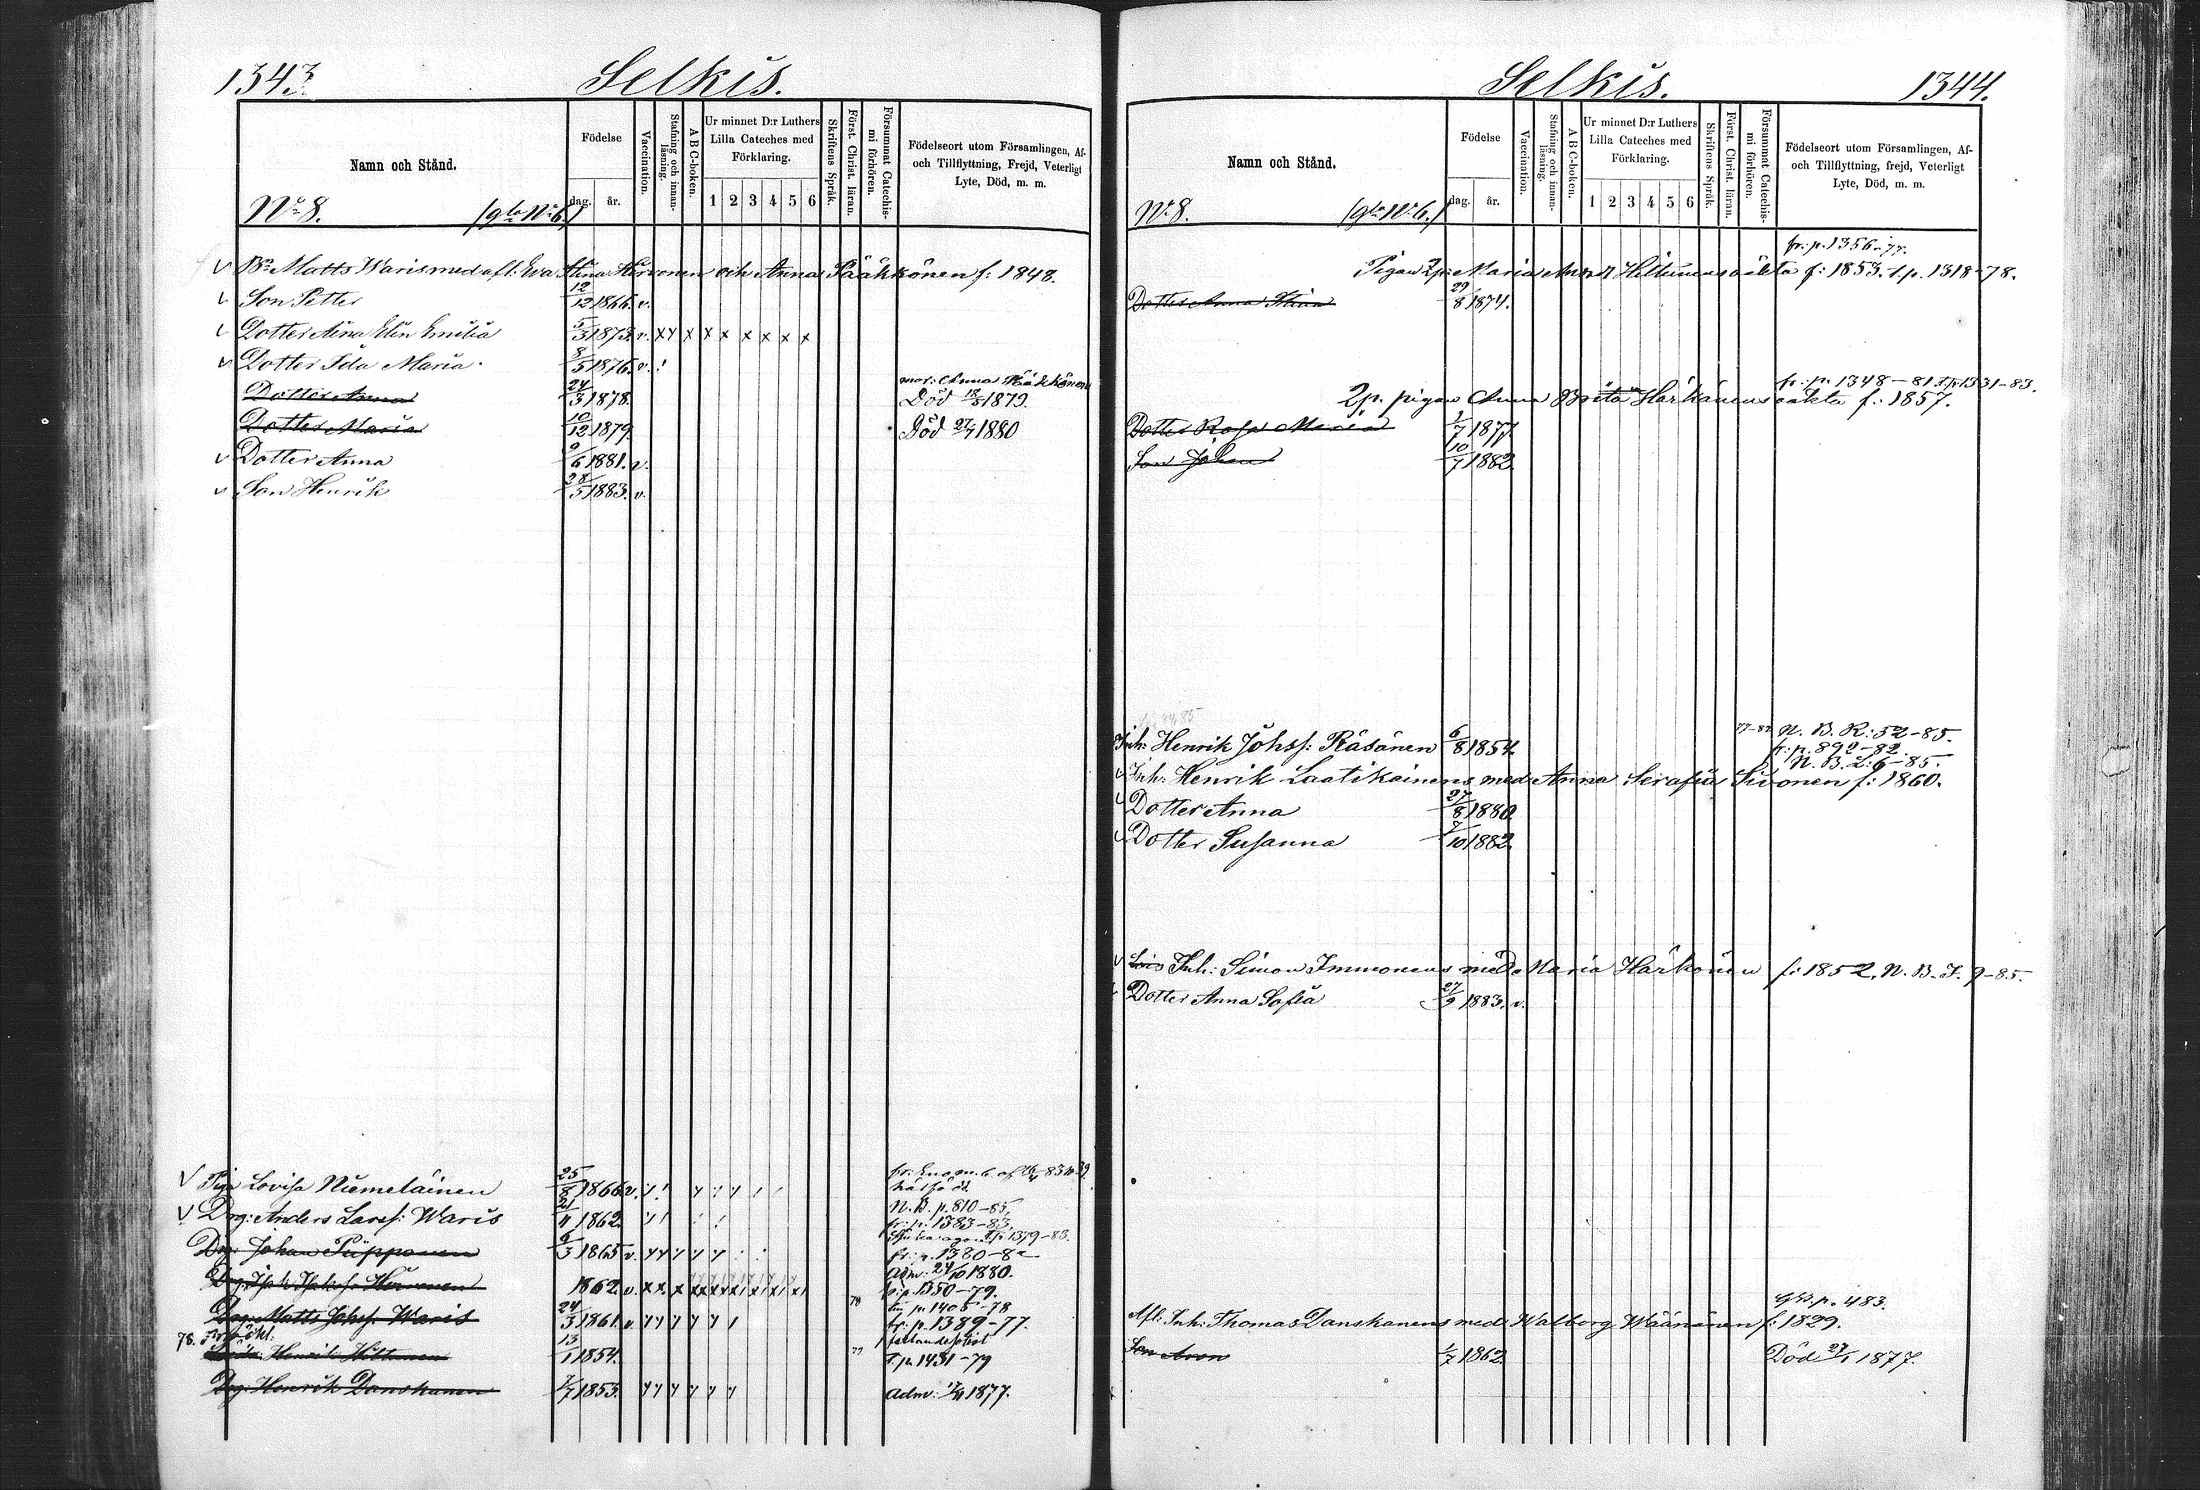 1343.
Selkis.
Namn och Stånd.
Födelse
dag.
år.
Vaccination.
Stafning och innan-läsning.
A B C-boken.
Ur minnet D:r Luthers
Lilla Cateches med
Förklaring.
1 2 3 4 5 6
Skriftens Språk.
Först. Christ. läran.
Försummat Catechis-
mi förhören.
Födelseort utom Församlingen, Af-
och Tillflyttning, Frejd, Veterligt
Lyte, Död, m. m.
No 8.
(gla No 6.)
Bn Matts Waris med afl: Eva Stina Hirvonen och Anna Pääkkönen f: 1848.
Son Petter 12/12 1866. v.
Dotter Aina Elin Emilia 5/3 1873. v. x x x x x x x x x
Dotter Ida Maria. 8/5 1876. v.
mor: Anna Pääkkönen
Dotter Anna 24/3 1878. Död 18/8 1879.
Dotter Maria 10/12 1879. Död 27/7 1880
Dotter Anna 9/6 1881. v.
Son Henrik 28/5 1883. v.
Piga Lovisa Niemeläinen 25/8 1866 v.
N. B. p. 810-85.
Drg: Anders Larsf: Waris 21/11 1862
fr: p. 1383-83.
Drg: Johan Piipponen 6/3 1865 v.
fr: p. 1380-82
Adm: 24/10 1880.
1862 v.
1350-79.
p. 1405-78
Drg: Matts Johsf: Waris 24/3 1861. v.
78
p. 1389-77.
78.
Henrik Hiltunen 13/1 1854.
77
T. p. 1431-79
Drg: Henrik Danskanen 7/7 1853. Adm: 17/11 1877.
Selkis.
1344.
Namn och Stånd.
Födelse
dag.
år.
Vaccination.
Stafning och innan-läsning.
A B C-boken.
Ur minnet D:r Luthers
Lilla Cateches med
Förklaring.
1 2 3 4 5 6
Skriftens Språk.
Först. Christ. läran.
Försummat Catechis-
mi förhören.
Födelseort utom Församlingen, Af-
och Tillflyttning, frejd, Veterligt
Lyte, Död, m. m.
No 8.
(gla No 6.)
fr: p. 1356-77.
Pigan 2p: Maria Hiltunens oäkta f: 1853. t. p. 1318-78.
Dotter Anna Stina 29/8 1874.
fr: p. 1348-81. T. p. 1331-83.
2p. pigan Anna Brita Härkänens oäkta f: 1857.
Dotter Rosa Maria 1/7 1877
Son Johan 10/7 1882.
Inh: Henrik Johsf: Räsänen 6/8 1854. 77-82 N. B. R: 52-85.
fr: p. 892-82.
N. B. L: 6-85.
Inh: Henrik Laatikainens med Anna Serafia Sivonen f: 1860.
Dotter Anna 27/8 1880.
Dotter Susanna 7/10 1882.
Inh: Simon Immonens med Maria Härkönen f: 1852. N. B. I. 9-85.
Dotter Anna Sofia 27/9 1883. v.
p. 483.
Afl: Inh: Thomas Danskanens med Walborg Wäänänen f: 1829.
Son Aron 1/7 1862. Död 27/1 1877.